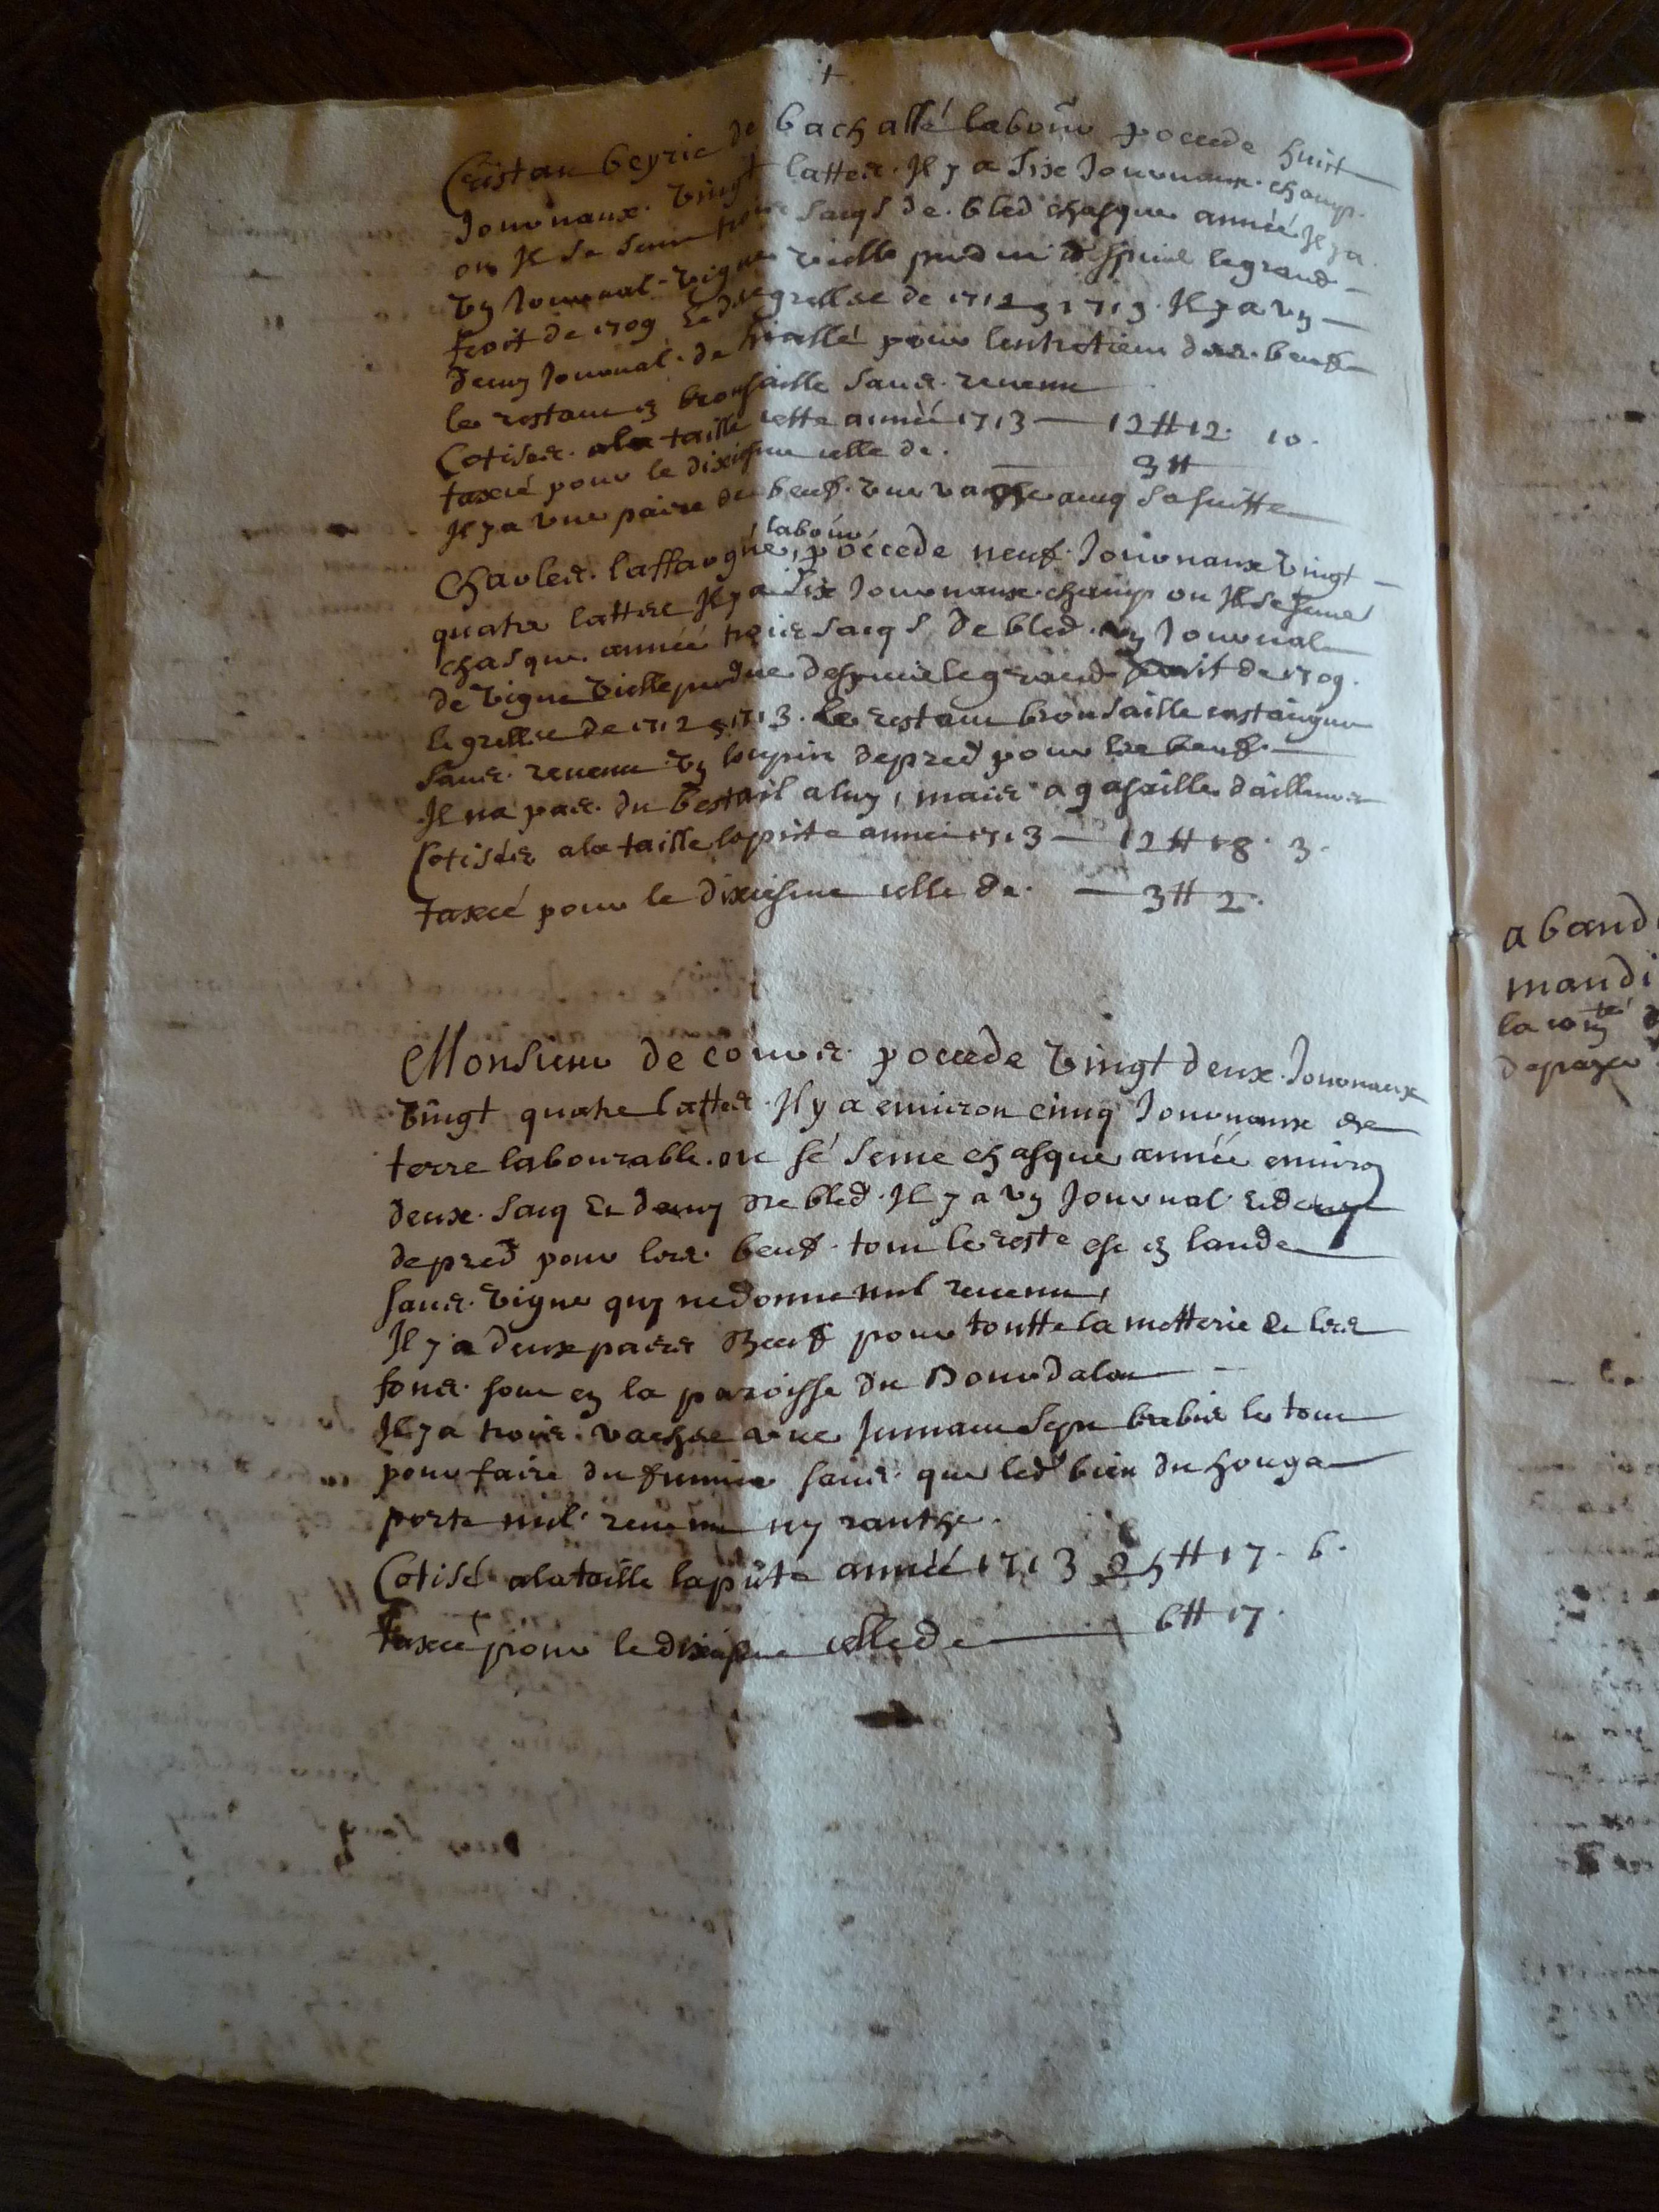 +
Cristau beyrie de bachassé labour pocede huit
Journaux vingt lattes. Il y a six Journaux champ.
ou Il se seme trois sacqs de bled chasque année Il y a
un Journal vigne vielle perdue despuis le grand
froit de 1709 Et desgrellée de 1712 & 1713. Il y a un
demy Journal de pour lentretien des beufs
le restant en brousaille sans revenu
Cotisés a la taille cette année 1713 — 12 # 12. 10.
taxcé pour le dixiesme celle de. — 3 #
Il y a une paire de beufs. une vache avuq sa suitte
labour
Charles laffargue, pocede neuf Journaux vingt
quatre lattes Il y a six Journaux champ ou Il se seme
chasque année trois sacqs de bled. un Journal
de vigne vielle perdue despuis le grand froit de 1709.
le grellée de 1712 & 1713. le restant brousaille
sans revenu un loupin de pred pour les beufs.
Il na pas du bestail a luy, mais a gasaille dailleurs
Cotisés a la taille la pnte année 1713 — 12 # 18. 3.
taxcé pour le dixiesme celle de. — 3 # 2.
Monsieur de cours pocede vingt deux Journaux
vingt quatre lattes. Il y a environ cinq Journaux de
terre labourable. ou sé seme chasque année environ
deux sacq Et demy de bled. Il y a un Journal Et demy
de pred pour les beufs. tout le reste est en lande
sans vigne quy ne donne nul revenu,
Il y a deux paires Beufs pour toutte la metterie Et les
fons sont en la paroisse du Bourdalat
Il y a trois vaches une Jumant sept brebis le tout
pour faire du fumier sans que led bien du houga
porte nul revenu ny ranthe.
Cotisé a la taille la pnte année 1713 25 # 17. 6.
taxcé pour le dixiesme celle de — 6 # 17.
aband
mandi
la
depayer